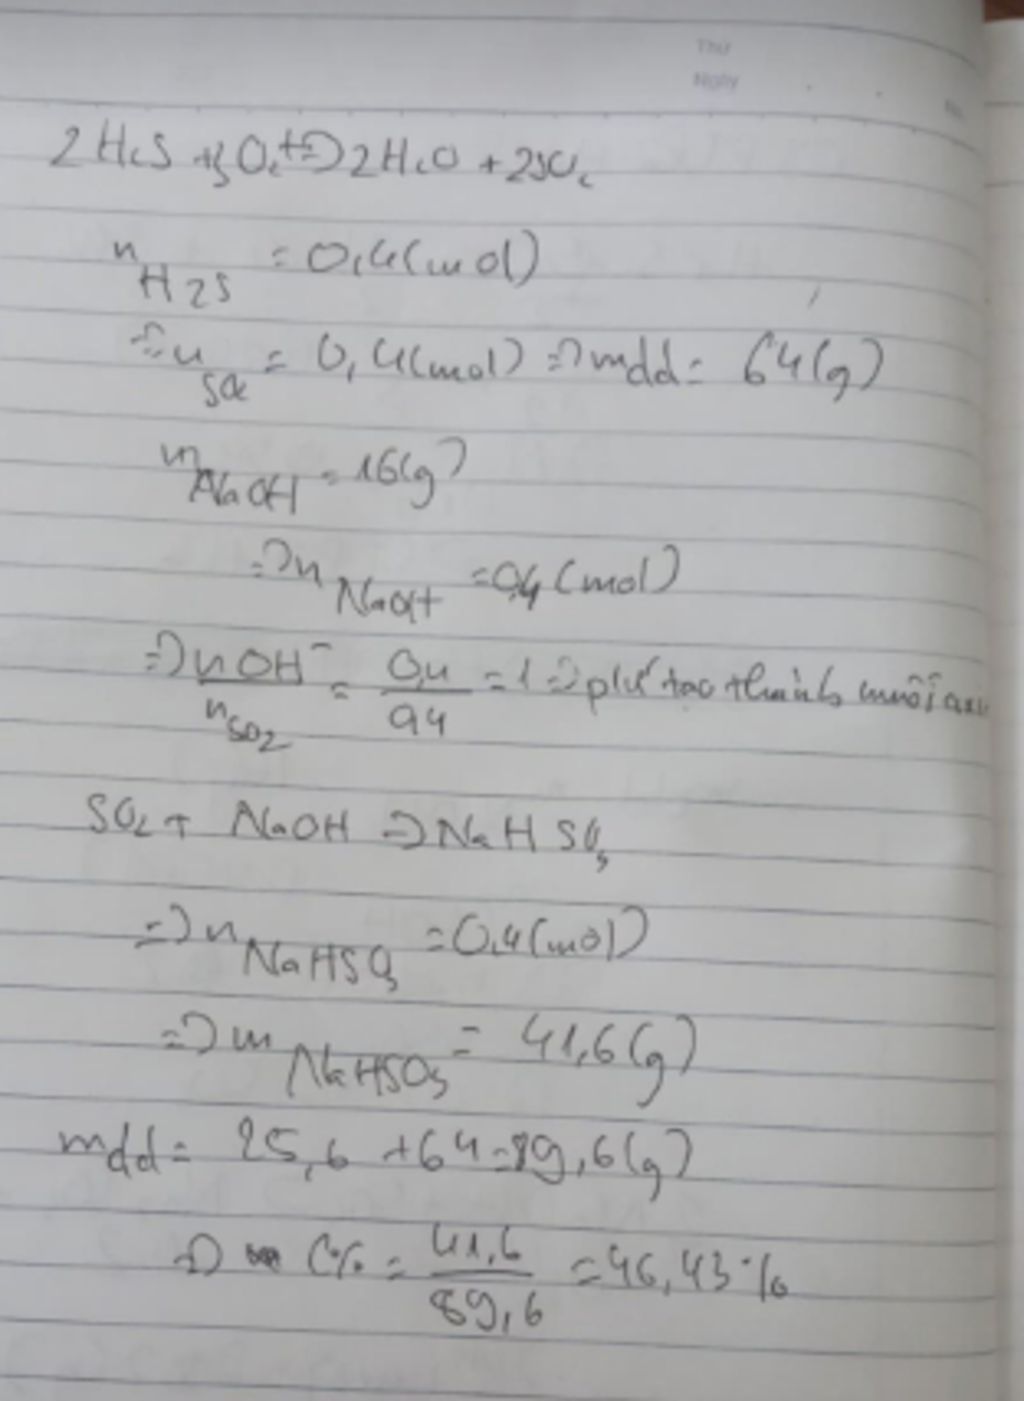 Thứ
Ngày
2H₂S + 3O₂ t° => 2H₂O + 2SO₂
n H2S = 0,4(mol)
=> n SO₂ = 0,4(mol) => mdd = 64(g)
m NaOH = 16(g)
=> n NaOH = 0,4 (mol)
=> nOH⁻ / n SO2 = 0,4 / 0,4 = 1 => pư tạo thành muối axit
SO₂ + NaOH => NaHSO₃
=> n NaHSO₃ = 0,4(mol)
=> m NaHSO₃ = 41,6(g)
mdd = 25,6 + 64 = 89,6(g)
=> C% = 41,6 / 89,6 = 46,43%